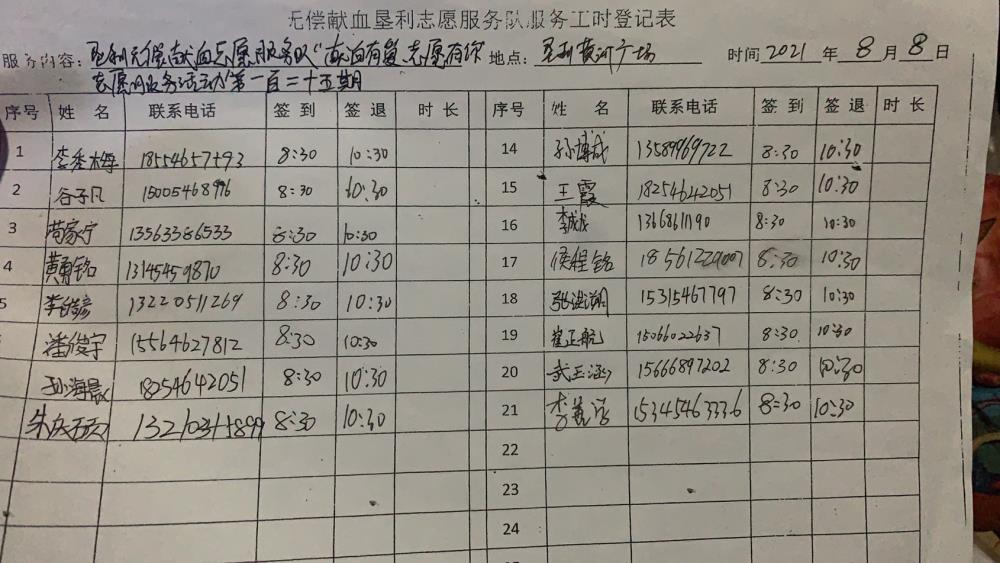 无偿献血垦利志愿服务队服务工时登记表
服务内容：垦利无偿献血志愿服务队"献血有益 志愿有你 地点：垦利黄河广场 时间 2021 年 8 月 8 日
志愿服务活动第一百二十五期
序号 姓 名 联系电话 签 到 签 退 时 长 序号 姓 名 联系电话 签 到 签 退 时 长
1 李秀梅 8:30 10:30 14 孙博成 13589969722 8:30 10:30
2 谷子凡 8:30 10:30 15 王霞 18254642051 8:30 10:30
3 苟家宁 13563386533 8:30 10:30 16 8:30 10:30
4 黄勇铭 13145459870 8:30 10:30 17 侯程铭 18561229007 8:30 10:30
5 13220511269 8:30 10:30 18 15315467797 8:30 10:30
潘俊宇 15564627812 8:30 10:30 19 崔正航 15066022637 8:30 10:30
孙海晨 18254642051 8:30 10:30 20 武玉涵 15666897202 8:30 10:30
8:30 10:30 21 15345463336 8:30 10:30
22
23
24